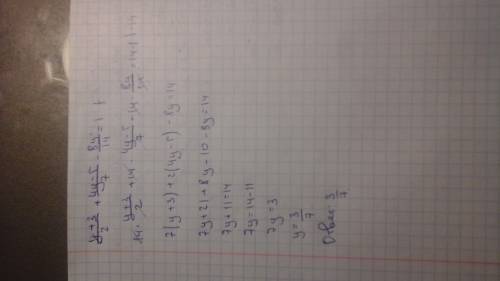 y+3/2 + 4y-5/7 - 8y/14 = 1 | ·
14 · y+3/2 + 14 · 4y-5/7 - 14 · 8y/14 = 14 · 1 | · 14
7(y+3)+2(4y-5)-8y=14
7y+21+8y-10-8y=14
7y+11=14
7y=14-11
7y=3
y=3/7
Ответ: 3/7